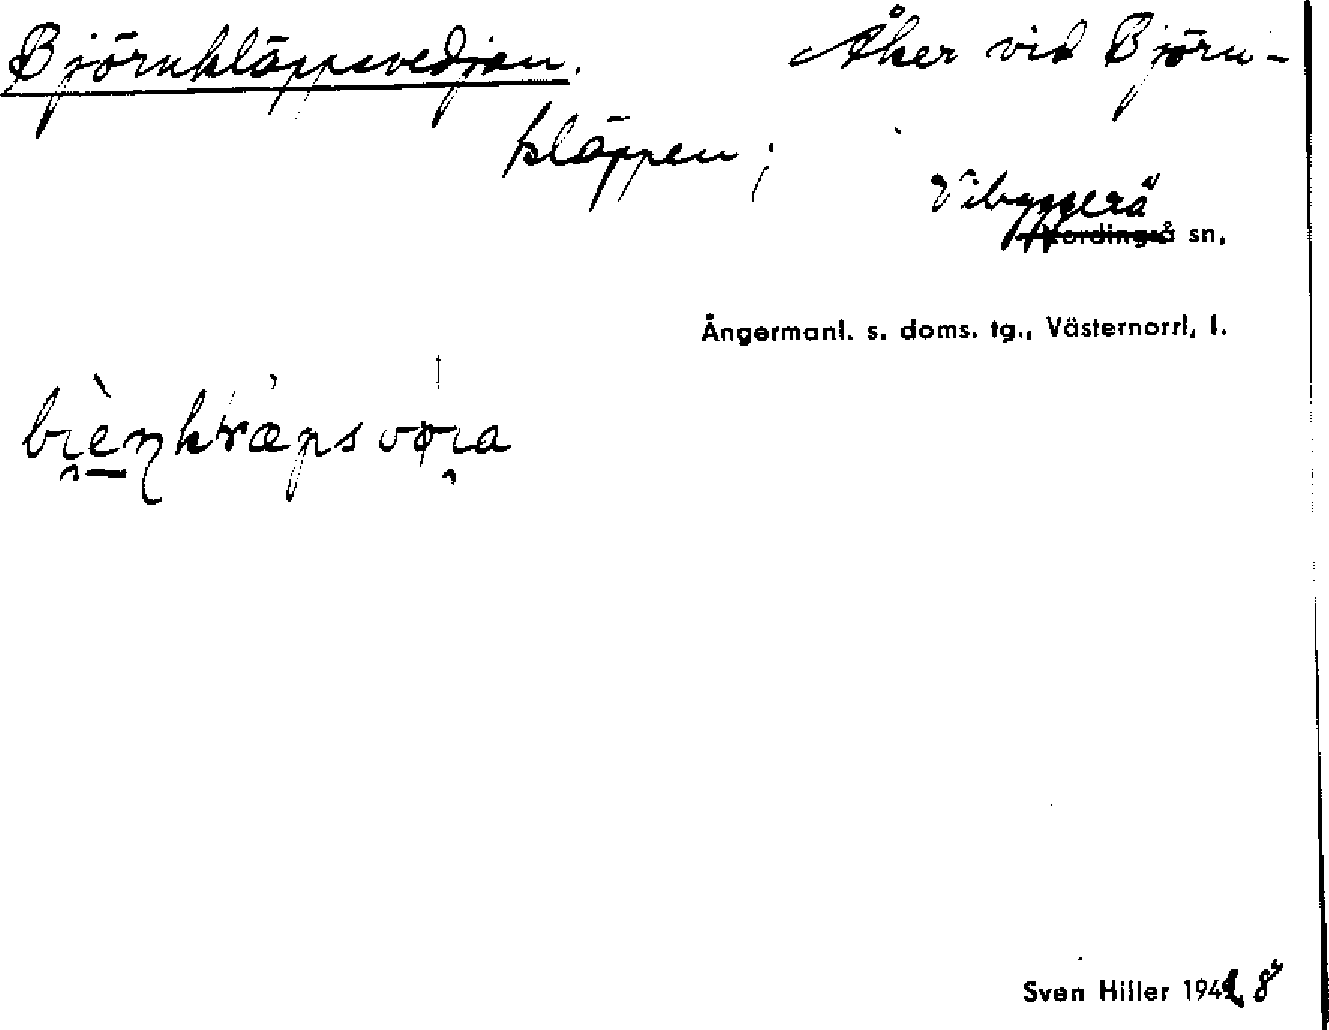 Björnkläppsvedjan. Åker vid Björn-
kläppen;
Vibyggerå
Nordingrå sn,
Ångermanl. s. doms. tg., Västernorrl, l.
Sven Hiller 1948